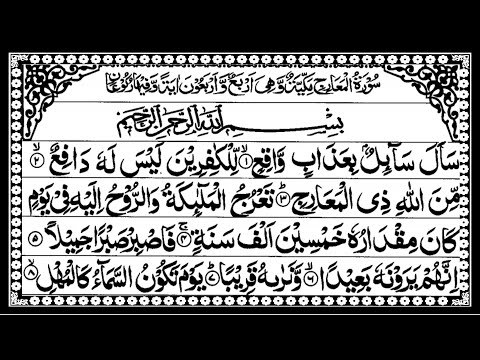 سُوْرَةُ الْمَعَارِجِ مَكِّيَّةٌ وَّهِيَ اَرْبَعٌ وَّاَرْبَعُوْنَ اٰيَةً وَّفِيْهَا رُكُوْعَانِ
بِسْمِ اللّٰهِ الرَّحْمٰنِ الرَّحِيْمِ
سَاَلَ سَآئِلٌۢ بِعَذَابٍ وَّاقِعٍ ۙ‏﴿۱﴾ لِّلْكٰفِرِيْنَ لَيْسَ لَهٗ دَافِعٌ ۙ‏﴿۲﴾
مِّنَ اللّٰهِ ذِي الْمَعَارِجِ ؕ‏﴿۳﴾ تَعْرُجُ الْمَلٰٓئِكَةُ وَالرُّوْحُ اِلَيْهِ فِيْ يَوْمٍ
كَانَ مِقْدَارُهٗ خَمْسِيْنَ اَلْفَ سَنَةٍ ۚ‏﴿۴﴾ فَاصْبِرْ صَبْرًا جَمِيْلًا ‏﴿۵﴾
اِنَّهُمْ يَرَوْنَهٗ بَعِيْدًا ۙ‏﴿۶﴾ وَّنَرٰىهُ قَرِيْبًا ؕ‏﴿۷﴾ يَوْمَ تَكُوْنُ السَّمَآءُ كَالْمُهْلِ ۙ‏﴿۸﴾